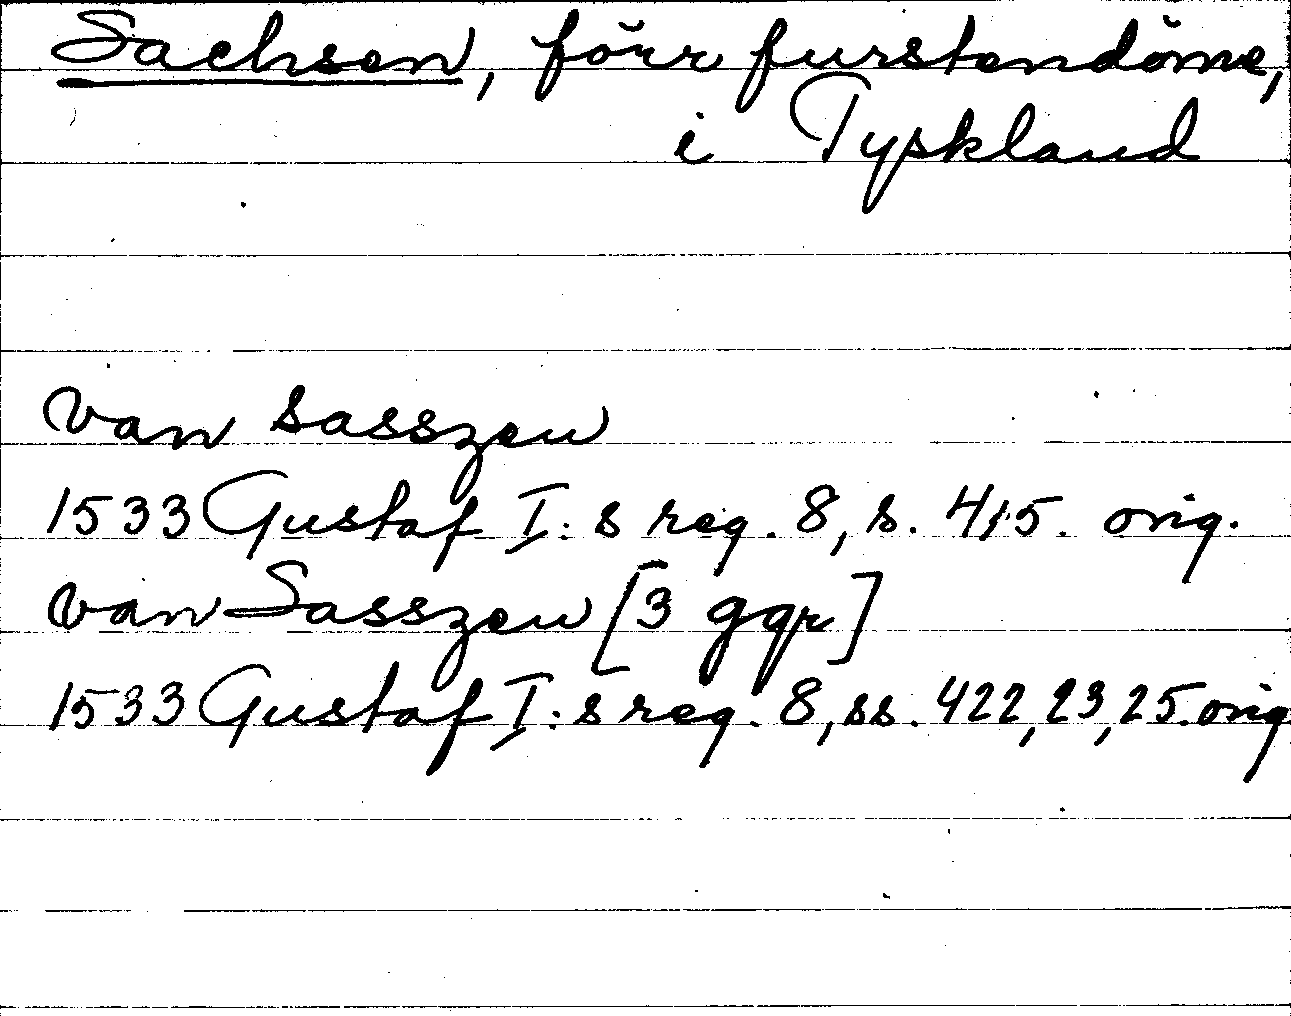 Sachsen, förr furstendöme,
i Tyskland
van sasszen
1533 Gustaf I:s reg. 8, s. 415. orig.
van Sasszen [3 ggr]
1533 Gustaf I:s reg. 8, ss. 422, 23, 25. orig